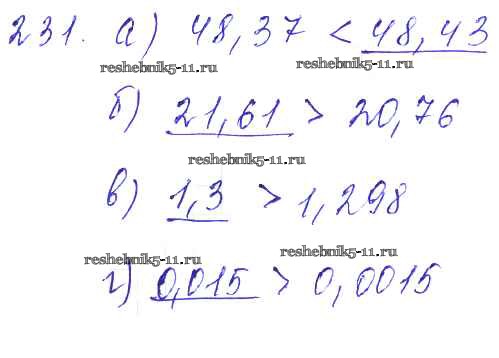 231. а) 48,37 < 48,43
reshebnik5-11.ru reshebnik5-11.ru
б) 21,61 > 20,76
reshebnik5-11.ru
в) 1,3 > 1,298
reshebnik5-11.ru reshebnik5-11.ru
г) 0,015 > 0,0015